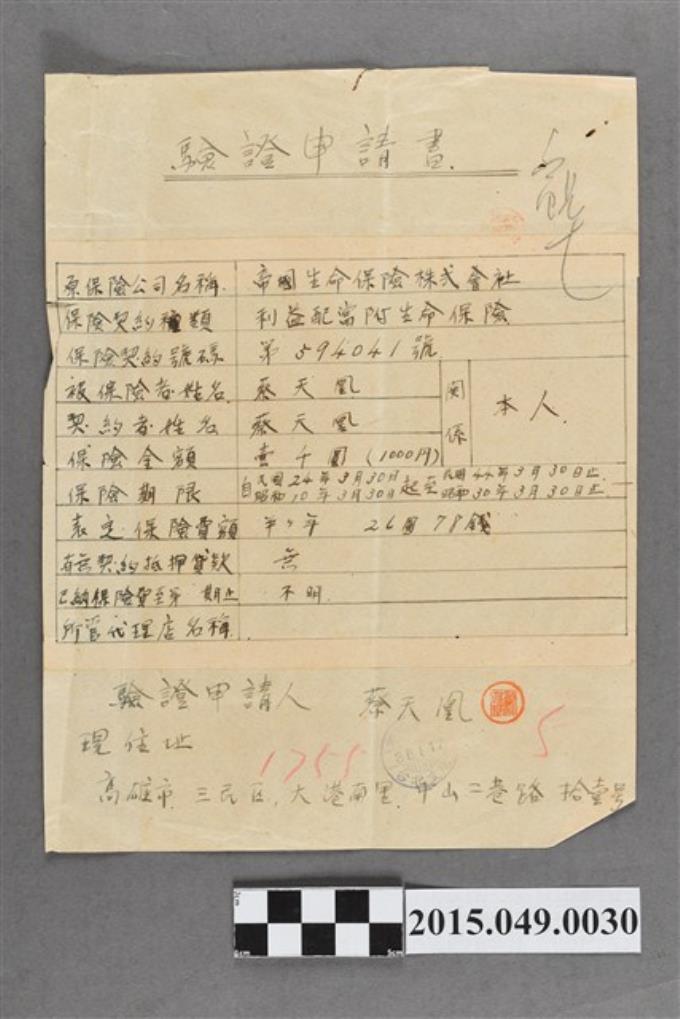 驗證申請書
原保險公司名稱. 帝國生命保險株式會社
保險契約種類 利益配當附生命保險
保險契約號碼 第594041號
被保險者姓名 蔡天凰 関係 本人.
契約者姓名 蔡天凰
保險金額 壹千圓 (1000円)
保險期限 自民國24年3月30日 昭和10年3月30日 起至 民國44年3月30日止 昭和30年3月30日止
表定保險費額 半々年 26圓78錢
有無契約抵押貸款 無
已納保險費至第 期止 不明.
所管代理店名稱.
驗證申請人 蔡天凰
5
現住址
1755
高雄市.三民區,大港南里.中山二巷路 拾壹号
2cm
6cm 5cm
2015.049.0030